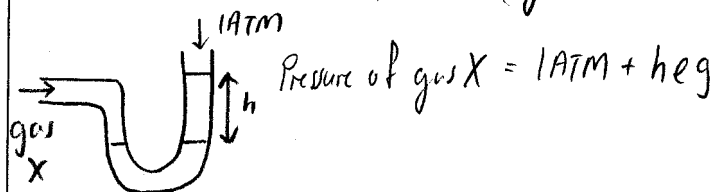 ↓ 1ATM
Pressure of gas X = 1ATM + hρg
h
gas
X